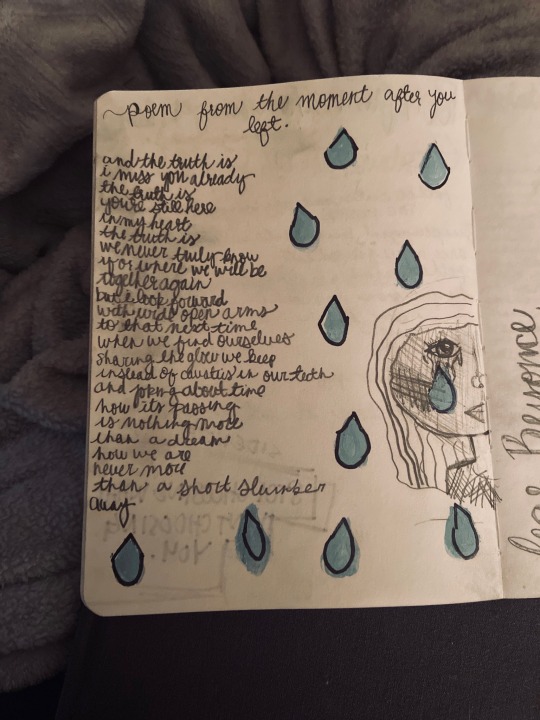 ~poem from the moment after you
left.
and the truth is
i miss you already
the truth is
you're still here
in my heart
the truth is
we never truly know
if or where we will be
together again
but i look forward
with wide open arms
to that next time
when we find ourselves
sharing the glow we keep
instead of in our teeth
and joking about time
how its passing
is nothing more
than a dream
how we are
never more
than a short slumber
away.
Beyonce,